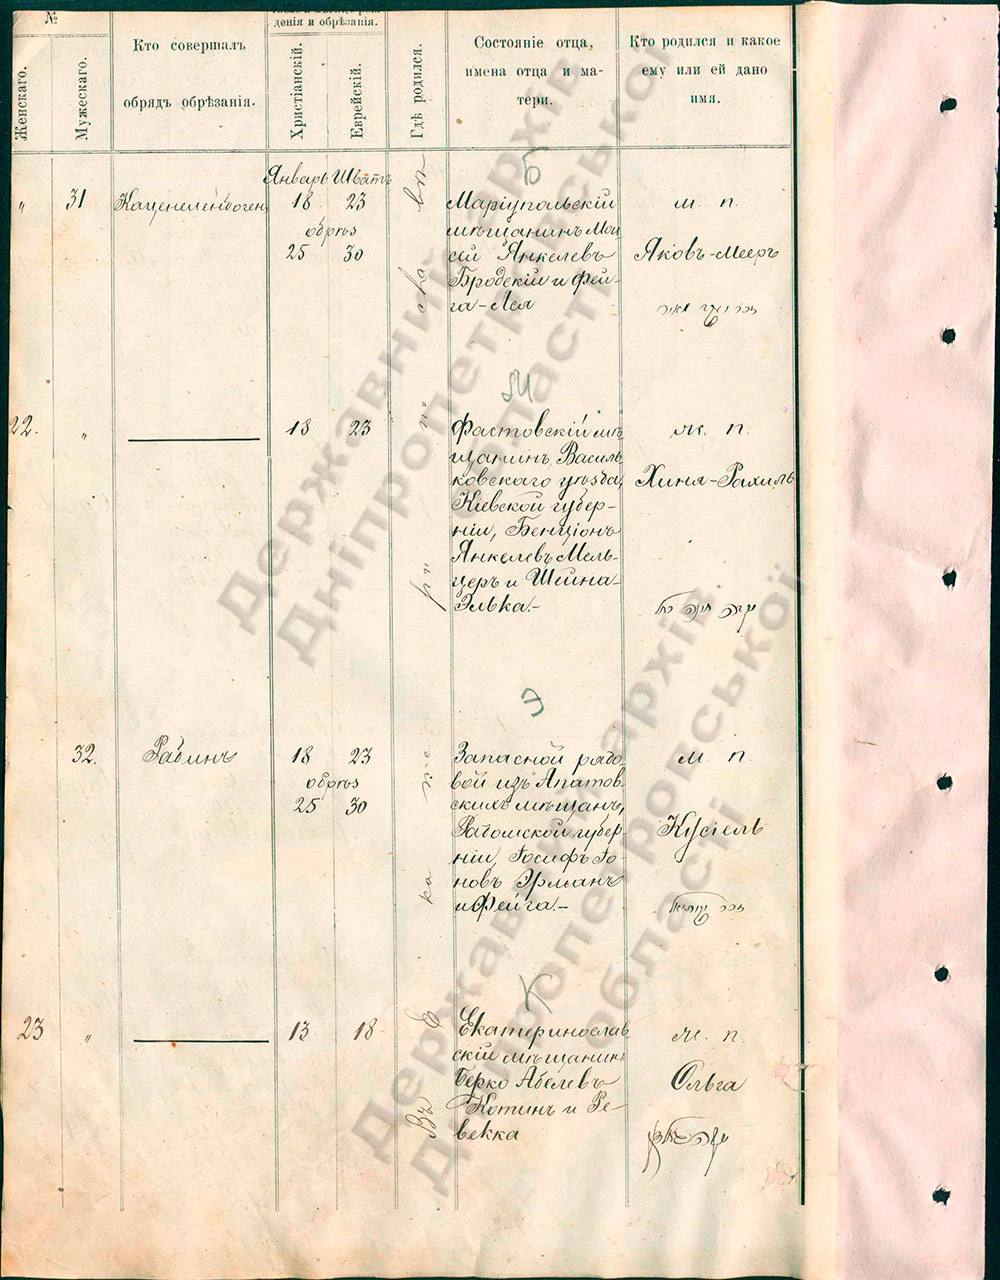 №
Женскаго.
Мужескаго.
Кто совершалъ
обрядъ обрѣзанія.
денія и обрѣзанія.
Христіанскій.
Еврейскій.
Гдѣ родился.
Состояніе отца,
имена отца и ма-
тери.
Кто родился и какое
ему или ей дано
имя.
Январь Шватъ
Б
„ 31 Каценеленбоген 18 23
обрѣз
25 30
Маріупольскій
мѣщанинъ Мои
сей Янкелевъ
Бродскій и Фей-
га-Лея
м. п.
Яковъ-Мееръ
М
22. „ 18 23
Фастовскій мѣ
щанинъ Василь
ковскаго уѣзда,
Кіевской губер-
ніи, Бенціонъ
Янкелевъ Мель-
церъ и Шейна-
Элька.-
ж. п.
Хиня-Рахиль
Э
32. Рабинъ 18 23
обрѣз
25 30
Запасной рядо
вой изъ Апатов-
скихъ мѣщанъ,
Радомской губер
ніи, Іосифъ Іо-
новъ Эрманъ
и Фейга.-
м. п.
Кусіель
К
23 „ 13 18
Екатеринослав
скій мѣщанинъ
Берко Абелевъ
Котинъ и Ре-
векка
ж. п.
Ольга
Въ Е ка те ри но сла вѣ
Державний архів
Дніпропетровської
області
Державний архів
Дніпропетровської
області